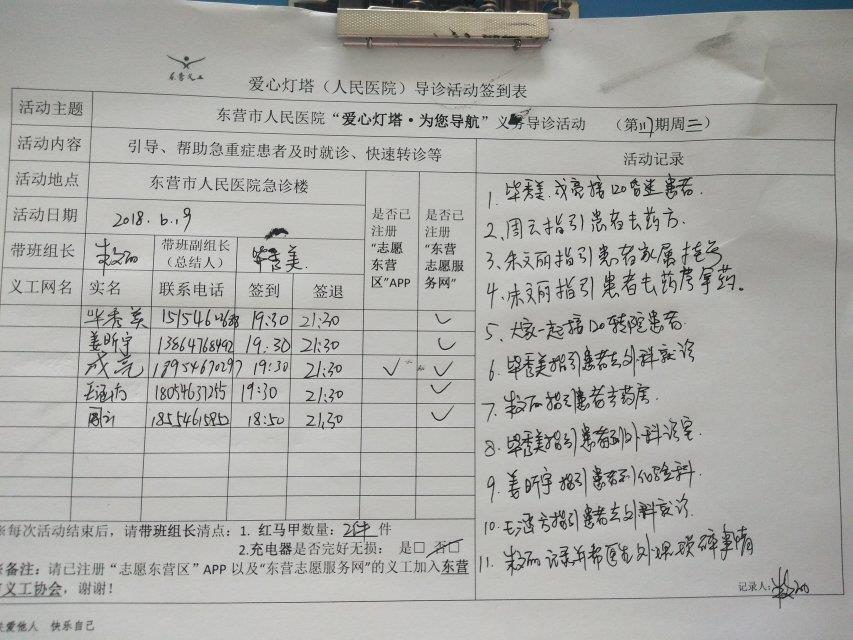 东营义工
爱心灯塔（人民医院）导诊活动签到表
活动主题 东营市人民医院“爱心灯塔·为您导航”义务导诊活动 （第117期周二）
活动内容 引导、帮助急重症患者及时就诊、快速转诊等 活动记录
活动地点 东营市人民医院急诊楼
活动日期 2018.6.19
是否已注册“志愿东营区”APP
是否已注册“东营志愿服务网”
带班组长 朱文丽 带班副组长（总结人） 毕秀美
义工网名 实名 联系电话 签到 签退
毕秀美 19:30 21:30 ✓
姜昕宇 13864768492 19:30 21:30 ✓
成亮 13954670297 19:30 21:30 ✓ ✓
18054637255 19:30 21:30 ✓
周云 18554615850 18:50 21:30 ✓
1. 毕秀美、成亮接120昏迷患者.
2、周云指引患者去药方.
3、朱文丽指引患者家属挂号
4、朱文丽指引患者去药房拿药。
5、大家一起接120转院患者.
6、毕秀美指引患者去外科就诊
7、朱文丽指引患者去药房.
8、毕秀美指引患者到外科诊室.
9、姜昕宇指引患者到化验科.
10、指引患者去外科就诊.
11、朱文丽记录并帮医生处理琐碎事情
记录人：朱文丽
※每次活动结束后，请带班组长清点：1. 红马甲数量：2件 件
2.充电器是否完好无损： 是□ 否□
※备注：请已注册“志愿东营区”APP 以及“东营志愿服务网”的义工加入东营
义工协会，谢谢！
关爱他人 快乐自己